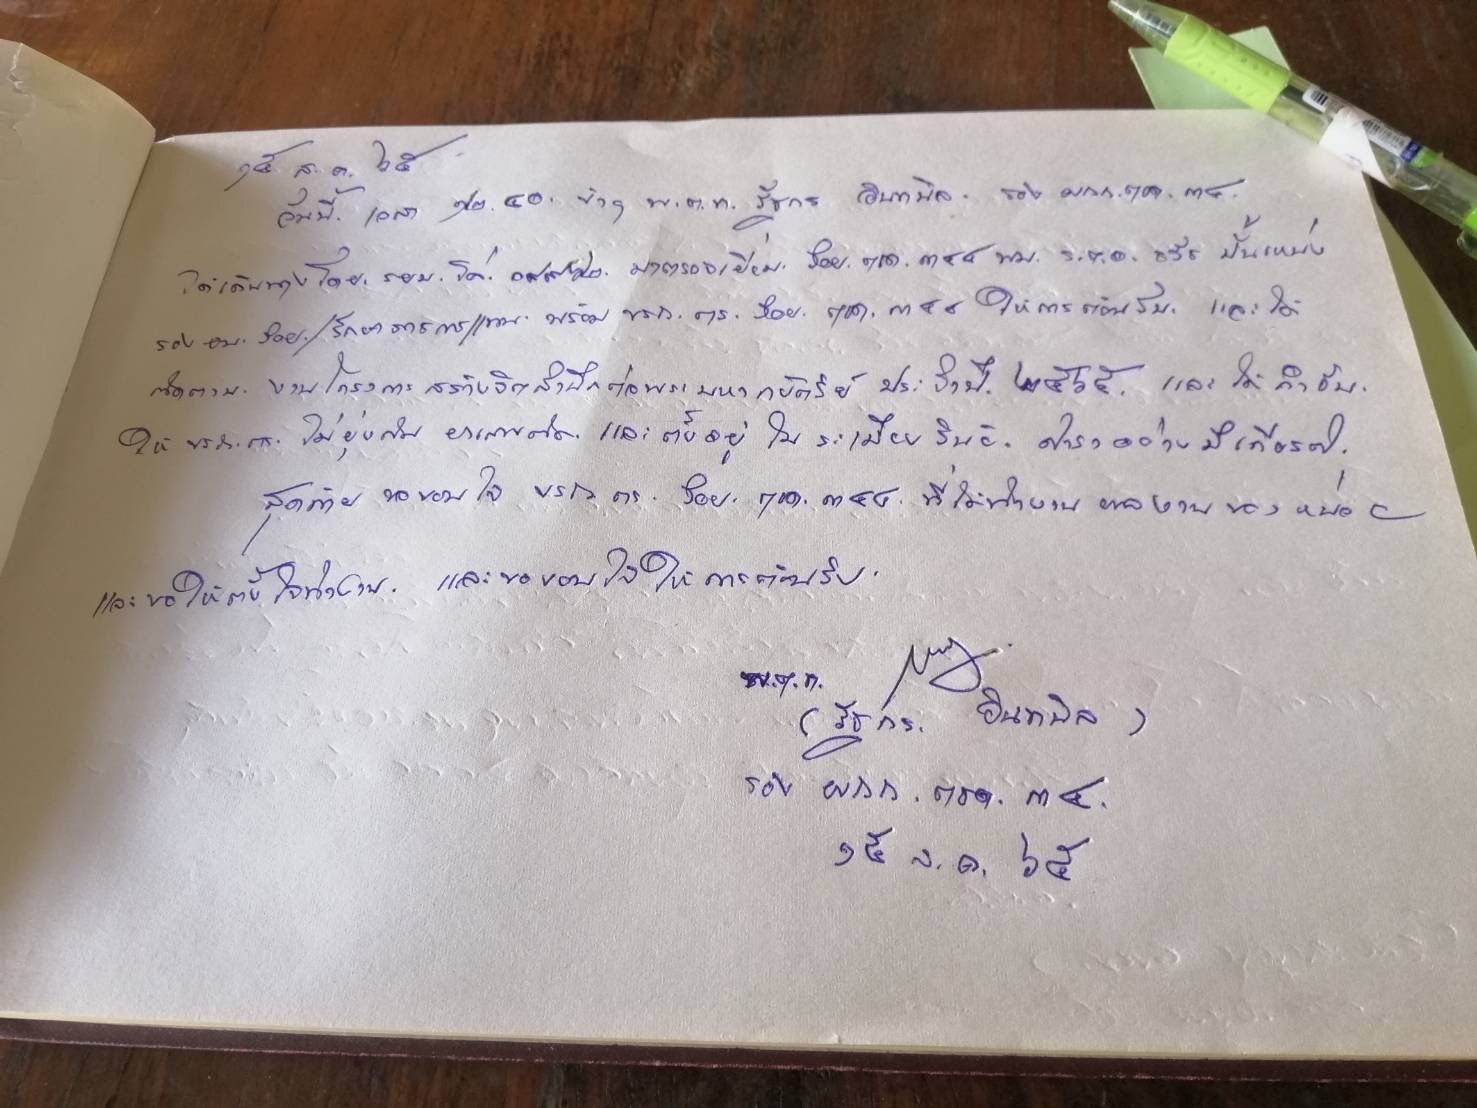 ๑๕ ส.ค. ๖๕
วันนี้. เวลา ๑๒.๔๐. ข้าฯ พ.ต.ท. รัฐกร อินทนิล. รอง ผกก.ตชด. ๓๔.
ได้เดินทางโดย. รยน. มาตรวจเยี่ยม. ร้อย. ตชด. ๓๔๔ พบ. ร.ต.อ.
รอง ผบ. ร้อย./รักษาราชการแทน. พร้อม ขรก. ตร. ร้อย. ตชด. ๓๔๔ ให้การต้อนรับ. และได้
ติดตาม. งานโครงการ สร้างจิตสำนึกต่อพระมหากษัตริย์ ประจำปี. ๒๕๖๕. และ ได้ กำชับ.
ให้ ขรก.ตร. ไม่ยุ่งกับ ยาเสพติด. และ ตั้งอยู่ ใน ระเบียบ วินัย. ตำรวจอย่าง มีเกียรติ.
สุดท้าย ขอขอบใจ ขรก ตร. ร้อย. ตชด. ๓๔๔. ที่ได้ทำงาน ผลงาน ของ หน่วย
และขอให้ตั้งใจทำงาน. และขอขอบใจให้การต้อนรับ.
พ.ต.ท.
( รัฐกร. อินทนิล )
รอง ผกก. ตชด. ๓๔.
๑๕ ส.ค. ๖๕